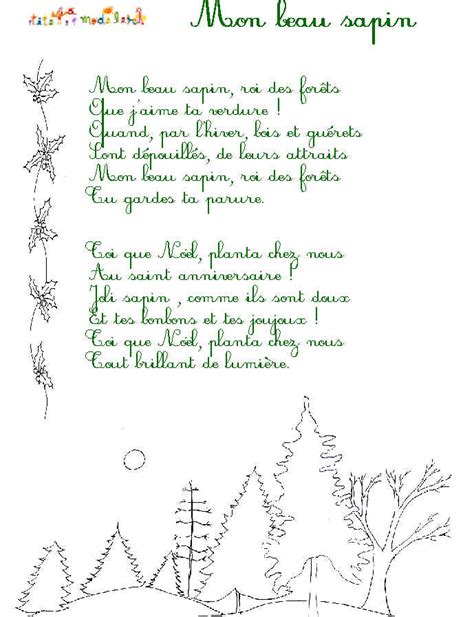 Mon beau sapin
Mon beau sapin, roi des forêts
Que j'aime ta verdure !
Quand, par l'hiver, bois et guérets
Sont dépouillés, de leurs attraits
Mon beau sapin, roi des forêts
Tu gardes ta parure.
Toi que Noël, planta chez nous
Au saint anniversaire !
Joli sapin , comme ils sont doux
Et tes bonbons et tes joujoux !
Toi que Noël, planta chez nous
Tout brillant de lumière.